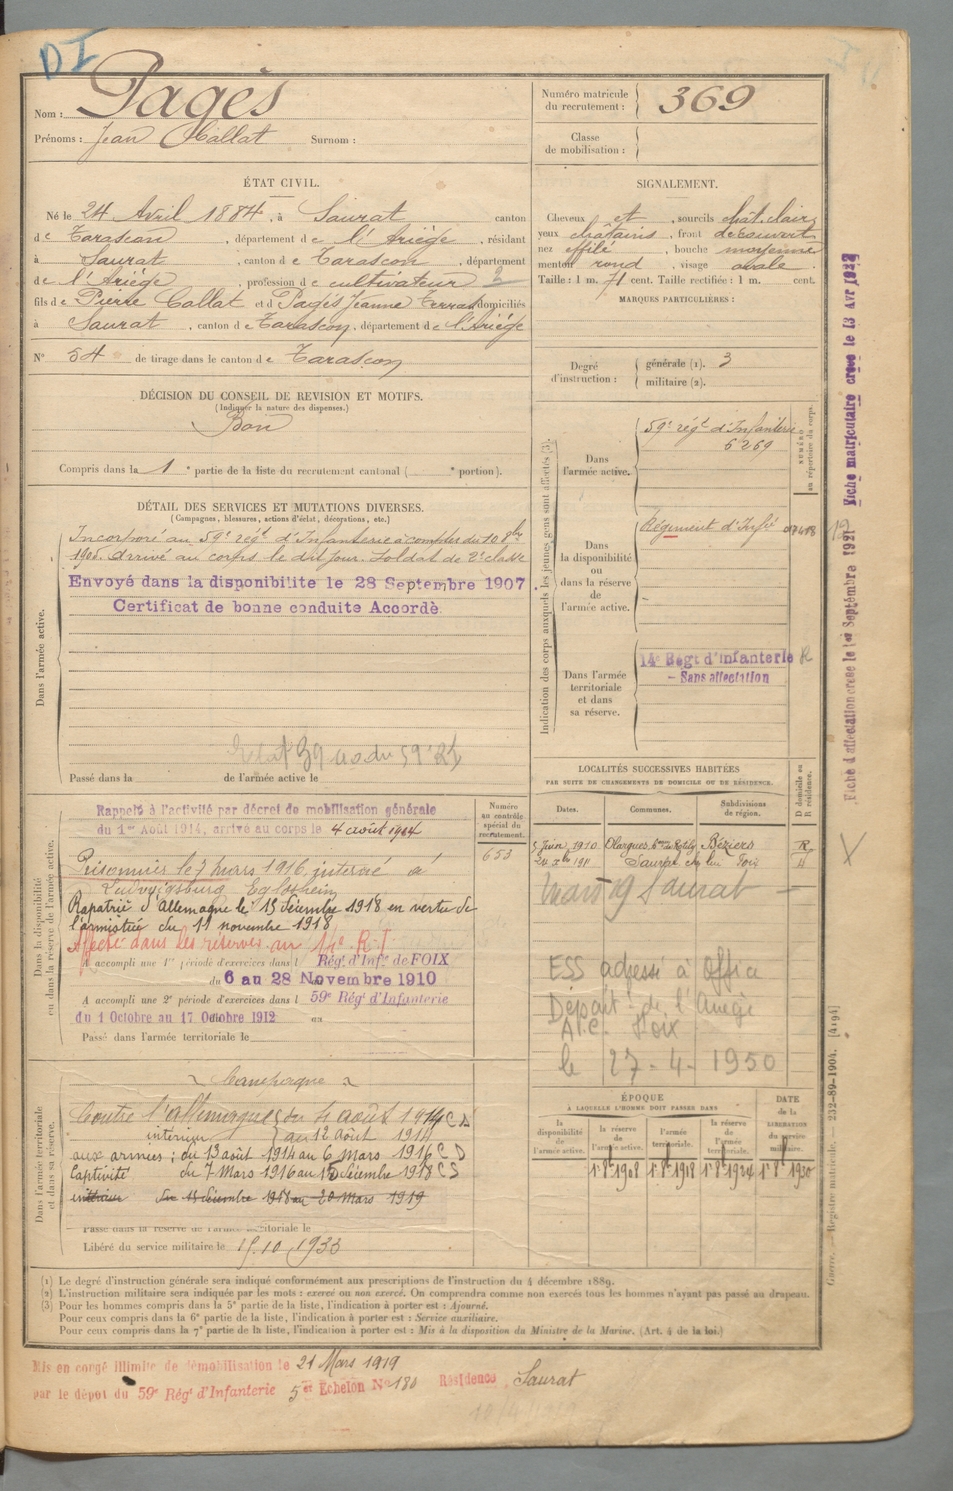 DI
Nom : Pagès
Prénoms : Jean Callat Surnom :
Numéro matricule du recrutement : 369
Classe de mobilisation :
ÉTAT CIVIL.
Né le 24 Avril 1884, à Saurat canton
de Tarascon, département de l'Ariège, résidant
à Saurat, canton de Tarascon, département
de l'Ariège, profession de cultivateur
fils de Pierre Callat et de Pagès Jeanne domiciliés
à Saurat, canton de Tarascon, département de l'Ariège
N° 54 de tirage dans le canton de Tarascon
DÉCISION DU CONSEIL DE REVISION ET MOTIFS.
(Indiquer la nature des dispenses.)
Bon
Compris dans la 1e partie de la liste du recrutement cantonal ( e portion).
SIGNALEMENT.
Cheveux et, sourcils chât. clair
yeux châtains, front découvert
nez effilé, bouche moyenne
menton rond, visage ovale.
Taille : 1 m. 71 cent. Taille rectifiée : 1 m. cent.
MARQUES PARTICULIÈRES :
Degré d'instruction :
générale (1). 3
militaire (2).
DÉTAIL DES SERVICES ET MUTATIONS DIVERSES.
(Campagnes, blessures, actions d'éclat, décorations, etc.)
Dans l'armée active.
Incorporé au 59e régt d'Infanterie à compter du 10 8bre
1905. Arrivé au corps le dit jour. Soldat de 2e classe
Envoyé dans la disponibilite le 28 Septembre 1907.
Certificat de bonne conduite Accordè.
Passé dans la de l'armée active le
Indication des corps auxquels les jeunes gens sont affectés (3).
NUMÉRO au répertoire du corps.
Dans l'armée active.
59e régt d'Infanterie
6269
Dans la disponibilité ou dans la réserve de l'armée active.
Régiment d'Infie
Dans l'armée territoriale et dans sa réserve.
14e Régt d'Infanterie
- Sans affectation
Dans la disponibilité ou dans la réserve de l'armée active.
Numéro au contrôle spécial du recrutement.
653
Rappelé à l'activité par décret de mobilisation générale
du 1er Août 1914, arrivé au corps le 4 août 1914
Prisonnier le 7 mars 1916, interné à
Ludwigsburg Eglosheim
Rapatrié d'Allemagne le 15 décembre 1918 en vertu de
l'armistice du 11 novembre 1918
Affecté dans les réserves au 14e R.I.
A accompli une 1re période d'exercices dans l Régt d'Inf. de FOIX
du 6 au 28 Novembre 1910
A accompli une 2e période d'exercices dans l 59e Régt d'Infanterie
du 1 Octobre au 17 Octobre 1912 au
Passé dans l'armée territoriale le
LOCALITÉS SUCCESSIVES HABITÉES
PAR SUITE DE CHANGEMENTS DE DOMICILE OU DE RÉSIDENCE.
Dates. Communes. Subdivisions de région. D domicile ou R résidence.
Juin 1910 Olargues Béziers R
1911 Saurat Foix
Mars 19 Saurat
ESS adressé à Office
Départt de l'Ariège
A.C. Foix
le 27-4-1950
Dans l'armée territoriale et dans sa réserve.
Campagne
Contre l'allemagne du 4 août 1914 CD
intérieur au 12 août 1914
aux armées : du 13 août 1914 au 6 mars 1916 CD
Captivité du 7 Mars 1916 au 15 décembre 1918 CS
intérieur du 15 décembre 1918 au 20 Mars 1919
Passé dans la réserve de l'armée territoriale le
Libéré du service militaire le 15.10.1933
ÉPOQUE
À LAQUELLE L'HOMME DOIT PASSER DANS
la disponibilité de l'armée active.
la réserve de l'armée active.
l'armée territoriale.
la réserve de l'armée territoriale.
DATE de la LIBÉRATION du service militaire.
1r 8b 1908 1r 8b 1918 1r 8b 1924 1r 8b 1930
(1) Le degré d'instruction générale sera indiqué conformément aux prescriptions de l'instruction du 4 décembre 1889.
(2) L'instruction militaire sera indiquée par les mots : exercé ou non exercé. On comprendra comme non exercés tous les hommes n'ayant pas passé au drapeau.
(3) Pour les hommes compris dans la 5e partie de la liste, l'indication à porter est : Ajourné.
Pour ceux compris dans la 6e partie de la liste, l'indication à porter est : Service auxiliaire.
Pour ceux compris dans la 7e partie de la liste, l'indication à porter est : Mis à la disposition du Ministre de la Marine. (Art. 4 de la loi.)
Mis en congé illimité de démobilisation le 21 Mars 1919
par le dépôt du 59e Régt d'Infanterie 5er Echelon No 180 Résidence Saurat
Fiche d'affectation créée le 1er Septembre 1921 Fiche matriculaire créée le 13 Avr
Guerre. — Registre matricule. — 232-89-1904. [4194]